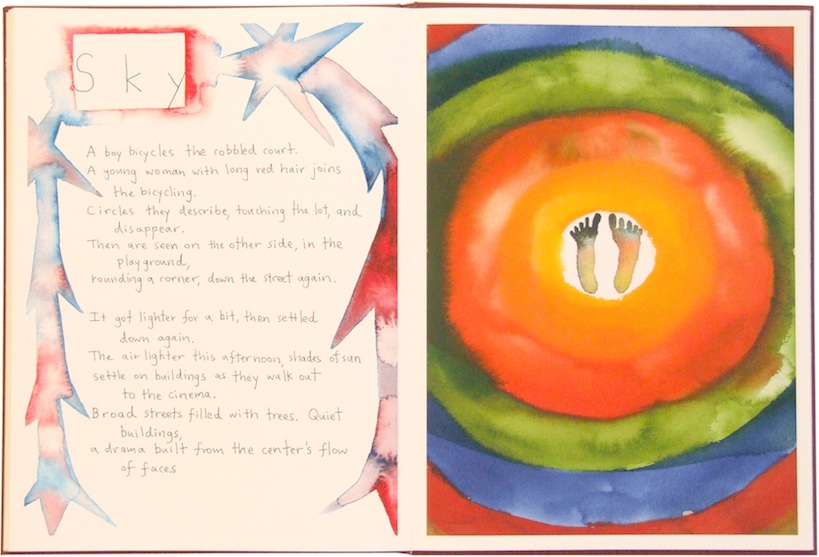 Sky
A boy bicycles the cobbled court.
A young woman with long red hair joins
the bicycling.
Circles they describe, touching the lot, and
disappear.
Then are seen on the other side, in the
playground,
rounding a corner, down the street again.
It got lighter for a bit, then settled
down again.
The air lighter this afternoon, shades of sun
settle on buildings as they walk out
to the cinema.
Broad streets filled with trees. Quiet
buildings,
a drama built from the center's flow
of faces